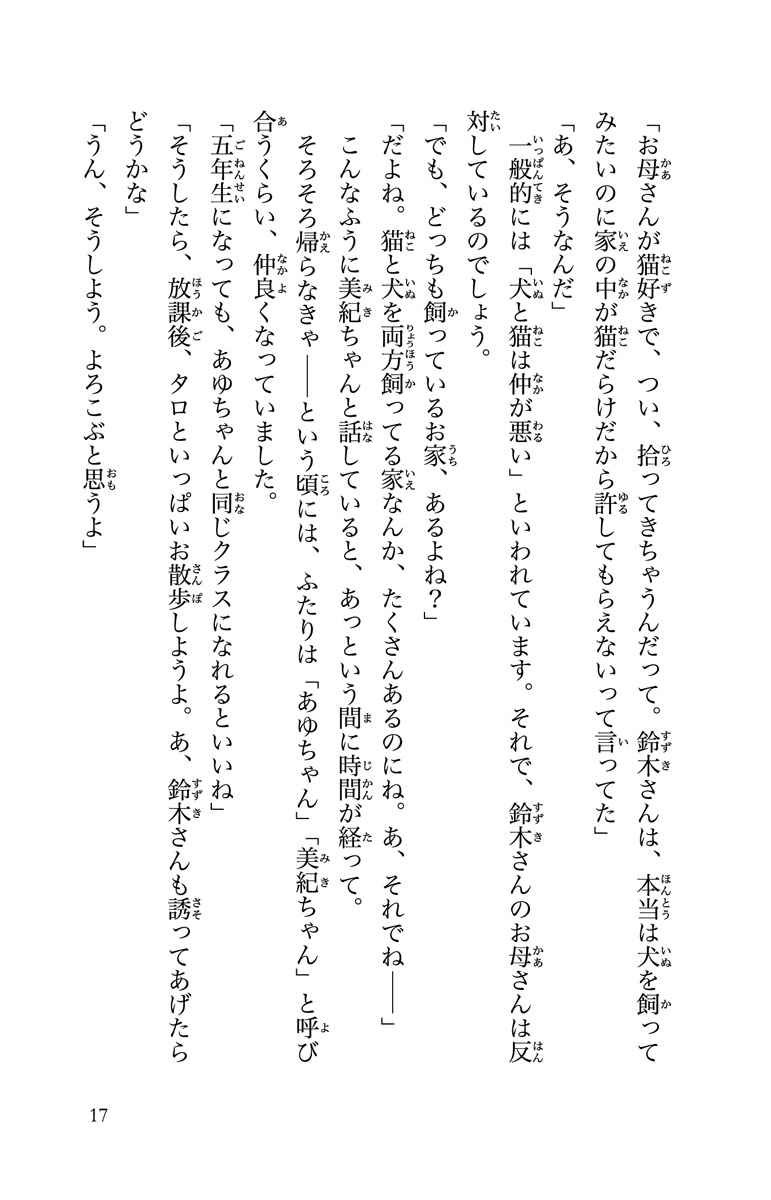 「お母さんが猫好きで、つい、拾ってきちゃうんだって。鈴木さんは、本当は犬を飼って
みたいのに家の中が猫だらけだから許してもらえないって言ってた」
「あ、そうなんだ」
一般的には「犬と猫は仲が悪い」といわれています。それで、鈴木さんのお母さんは反
対しているのでしょう。
「でも、どっちも飼っているお家、あるよね？」
「だよね。猫と犬を両方飼ってる家なんか、たくさんあるのにね。あ、それでね――」
こんなふうに美紀ちゃんと話していると、あっという間に時間が経って。
そろそろ帰らなきゃ――という頃には、ふたりは「あゆちゃん」「美紀ちゃん」と呼び
合うくらい、仲良くなっていました。
「五年生になっても、あゆちゃんと同じクラスになれるといいね」
「そうしたら、放課後、タロといっぱいお散歩しようよ。あ、鈴木さんも誘ってあげたら
どうかな」
「うん、そうしよう。よろこぶと思うよ」
17